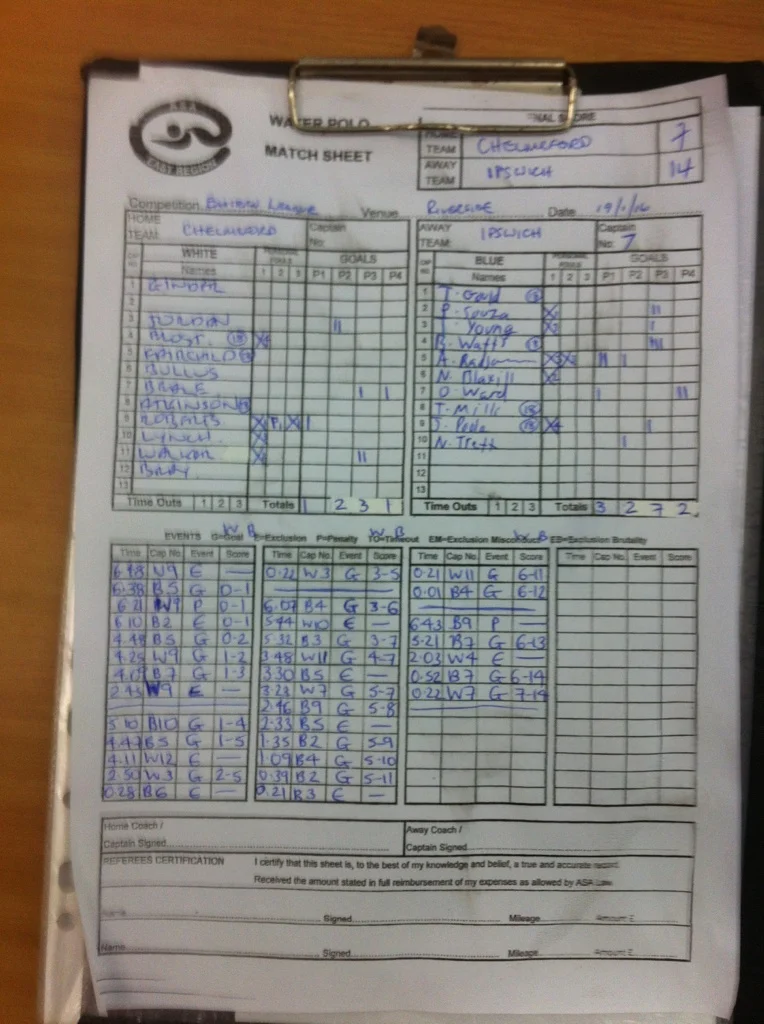 ASA
EAST REGION
WATER POLO
MATCH SHEET
FINAL SCORE
HOME TEAM CHELMSFORD 7
AWAY TEAM IPSWICH 14
Competition Venue RIVERSIDE Date
HOME TEAM: CHELMSFORD Captain No:
AWAY TEAM: IPSWICH Captain No: 7
CAP NO WHITE Names PERSONAL FOULS 1 2 3 GOALS P1 P2 P3 P4
1
2
3 JORDAN II
4
5 FAIRCHILD
6 BULLUS
7 I I
8 ATKINSON
9 ROBERTS I
10 LYNCH
11 WALKER II
12 BRAY
13
Time Outs 1 2 3 Totals 1 2 3 1
CAP NO BLUE Names PERSONAL FOULS 1 2 3 GOALS P1 P2 P3 P4
1 T. Gould
2 P. Souza
3 Young
4 B. Watts
5
6 N. Blaxill
7 O. Ward
8 T. Mills
9 J. Poole
10
11
12
13
Time Outs 1 2 3 Totals 3 2 7 2
EVENTS G=Goal E=Exclusion P=Penalty TO=Timeout EM=Exclusion Misconduct EB=Exclusion Brutality
W B W B W B
Time Cap No. Event Score
6.48 W9 E —
6.38 B5 G 0-1
6.21 W9 P 0-1
6.10 B2 E 0-1
4.48 B5 G 0-2
4.25 W9 G 1-2
4.09 B7 G 1-3
2.43 W9 E —
5.10 B10 G 1-4
4.47 B5 G 1-5
4.11 W12 E —
2.50 W3 G 2-5
0.28 B6 E —
Time Cap No. Event Score
0.22 W3 G 3-5
6.07 B4 G 3-6
5.44 W10 E —
5.32 B3 G 3-7
3.48 W11 G 4-7
3.30 B5 E —
3.23 W7 G 5-7
2.46 B9 G 5-8
2.33 B5 E —
1.35 B2 G 5-9
1.09 B4 G 5-10
0.39 B2 G 5-11
0.21 B3 E —
Time Cap No. Event Score
0.21 W11 G 6-11
0.01 B4 G 6-12
6.43 B9 P —
5.21 B7 G 6-13
2.03 W4 E —
0.52 B7 G 6-14
0.22 W7 G 7-14
Time Cap No. Event Score
Home Coach /
Captain Signed
Away Coach /
Captain Signed
REFEREES CERTIFICATION I certify that this sheet is, to the best of my knowledge and belief, a true and accurate record.
Received the amount stated in full reimbursement of my expenses as allowed by ASA Law
Name Signed Mileage Amount £
Name Signed Mileage Amount £